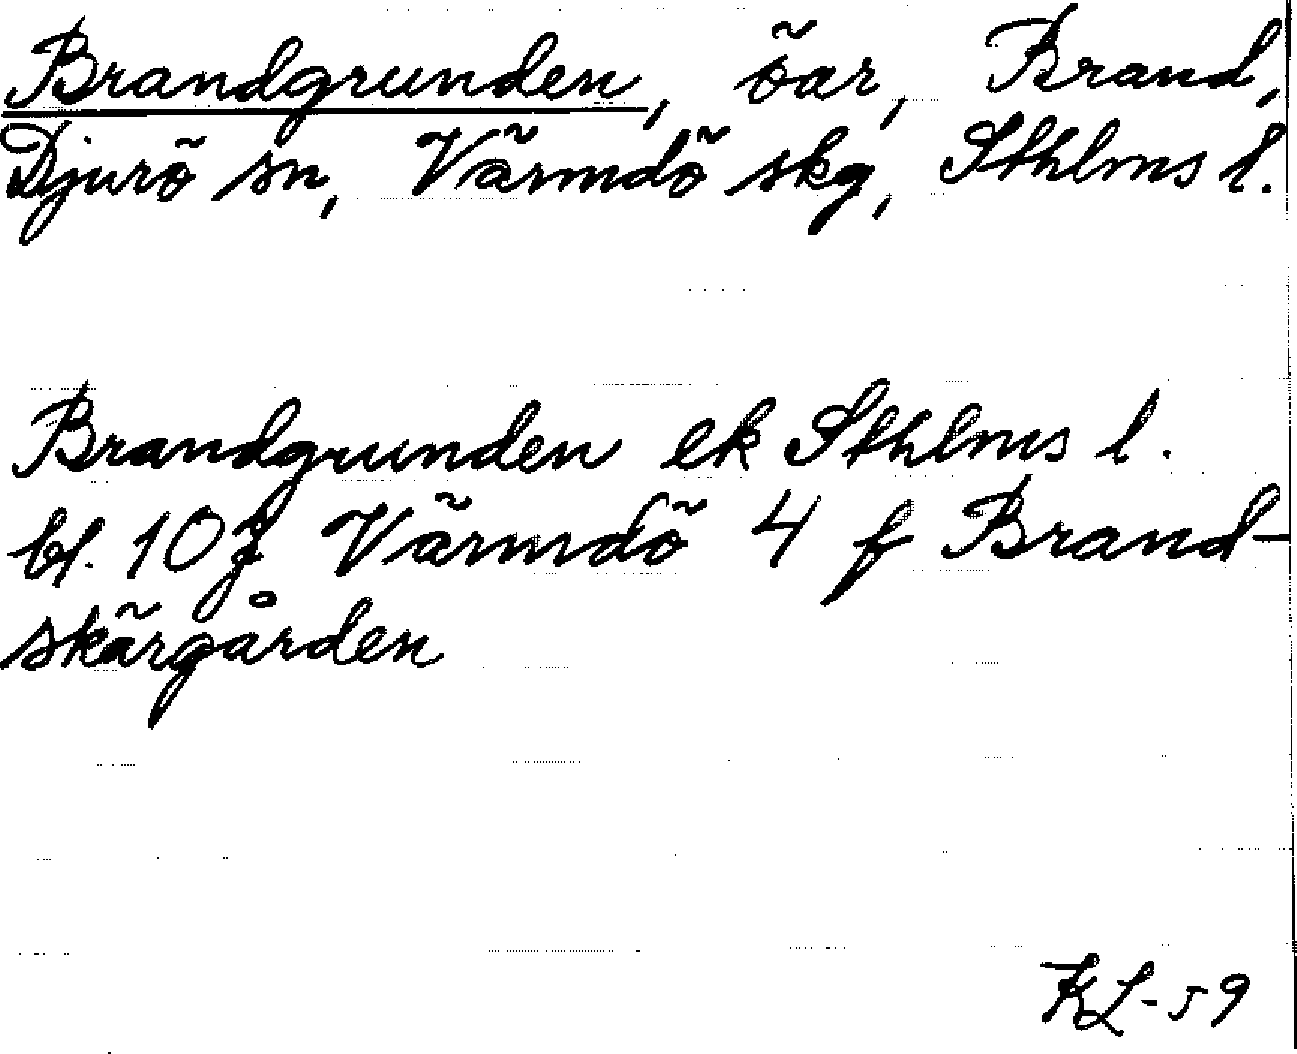 Brandgrunden, öar, Brand,
Djurö sn, Värmdö skg, Sthlms l.
Brandgrunden ek Sthlms l.
bl. 10 Värmdö 4 f Brand-
skärgården
KL-59